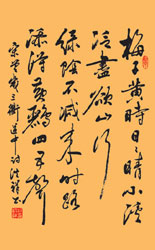 梅子黃時日日晴小溪
泛盡卻山行
綠陰不減來時路
添得黃鸝四五聲
宋曾幾三衢道中詩